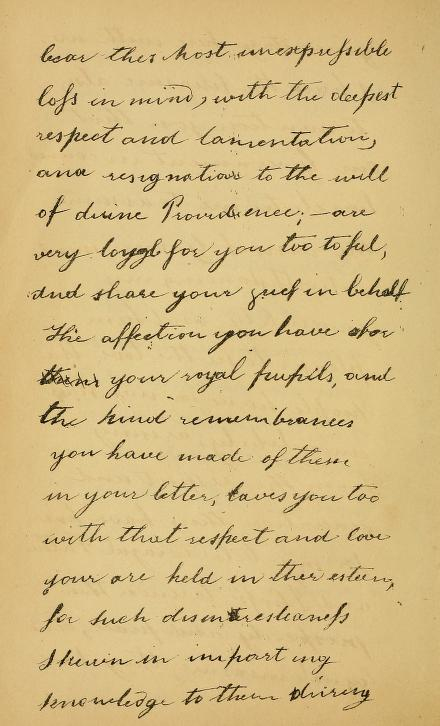 bear this most unexpressible
loss in mind, with the deepest
respect and lamentation,
and resignation to the will
of divine Providence; — are
very loyal for you too to ful,
and share your grief in behalf
The affection you have
your royal pupils, and
the kind remembrances
you have made of them
in your letter, laves you too
with that respect and love
your are held in ther esteem,
for such disinterestedness
shewn in imparting
knowledge to them during